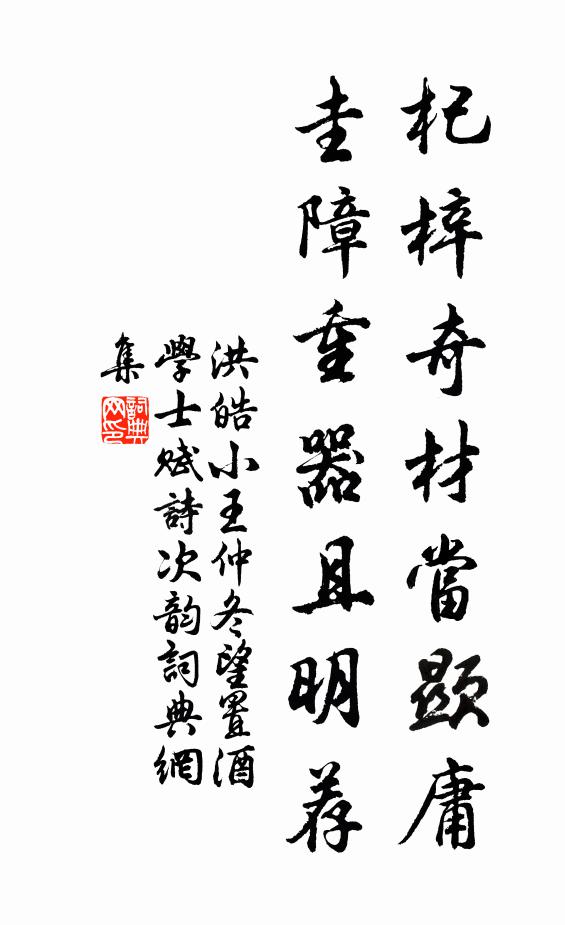 杞梓奇材當顯庸
圭障重器且明荐
洪皓小王仲冬望置酒
學士赋詩次韵詞典網
集
詞典
网印